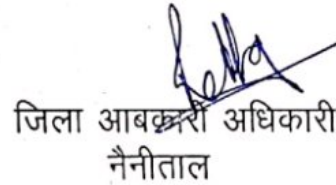 जिला आबकारी अधिकारी
नैनीताल